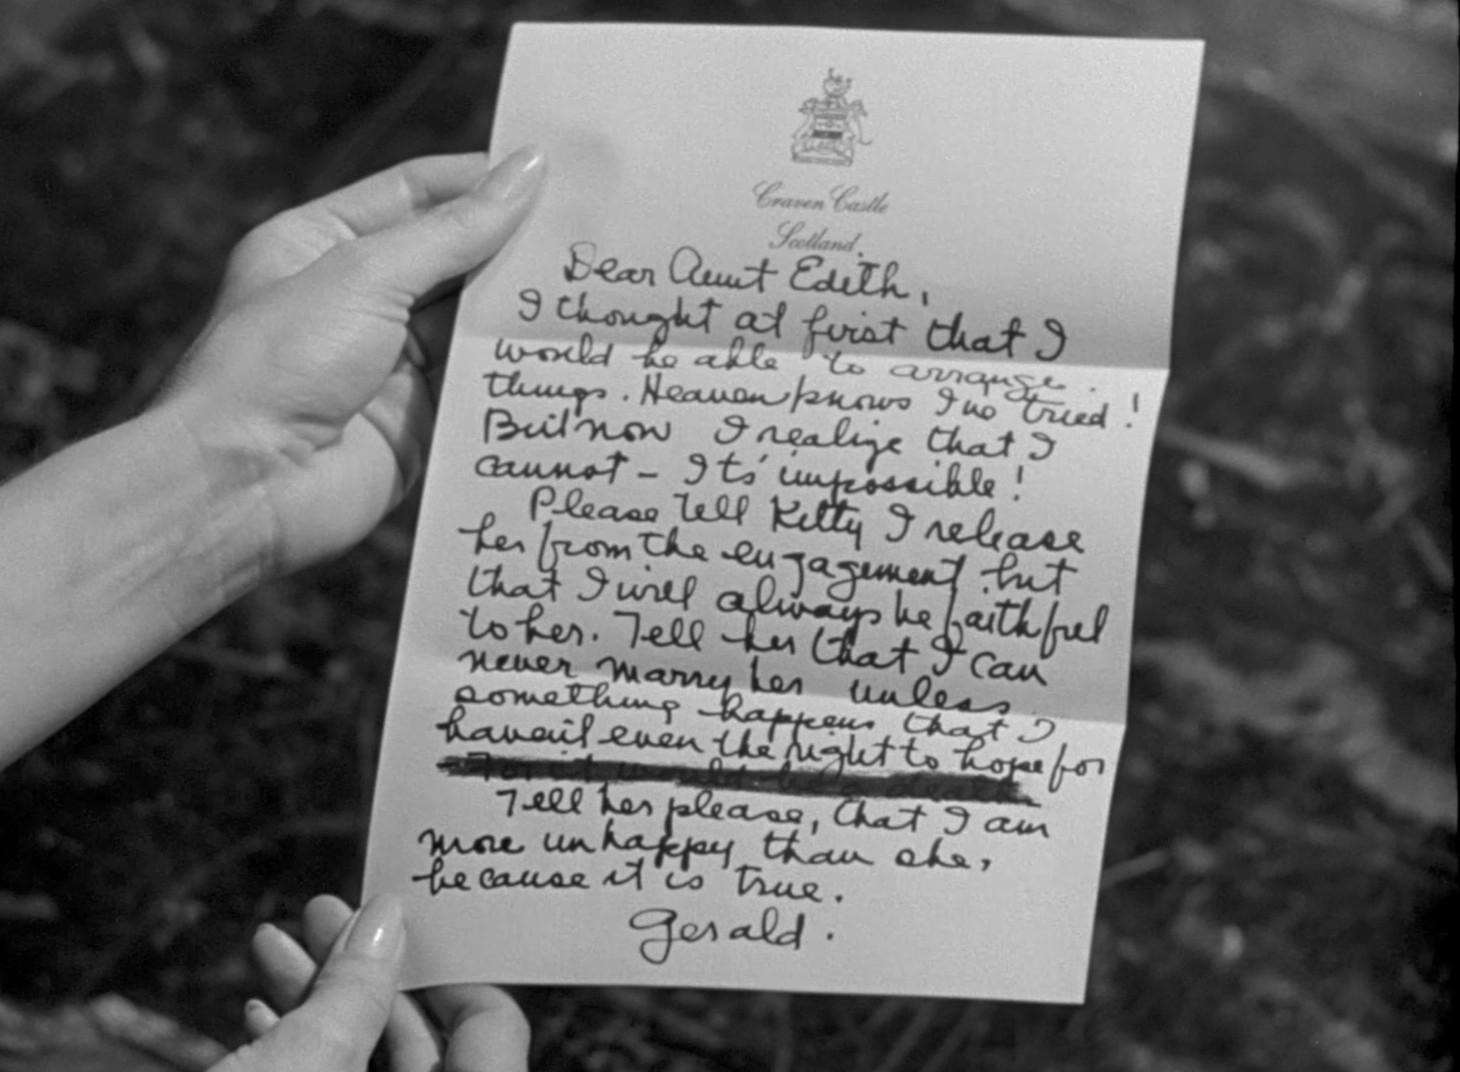 Craven Castle
Scotland.
Dear Aunt Edith,
I thought at first that I
would be able to arrange
things. Heaven knows I've tried!
But now I realize that I
cannot - It's impossible!
Please tell Kitty I release
her from the engagement but
that I will always be faithful
to her. Tell her that I can
never marry her unless
something happens that I
haven't even the right to hope for
Tell her please, that I am
more unhappy than she,
because it is true.
Gerald.